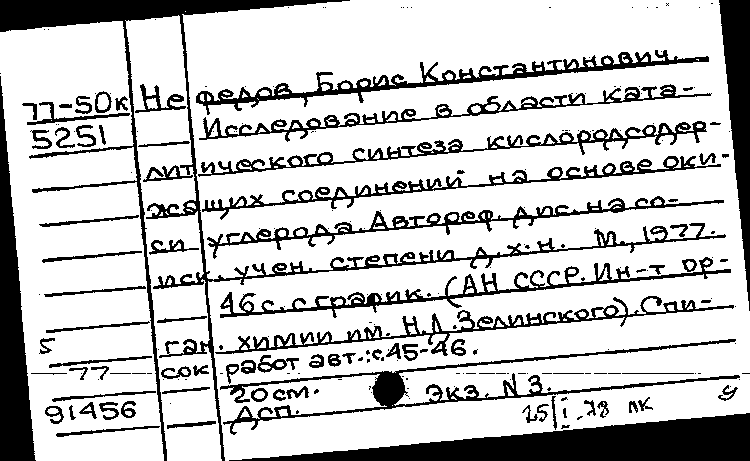 Нефедов, Борис Константинович.
77-50к
5251
Исследование в области ката-
литического синтеза кислородсодер-
жащих соединений на основе оки-
си углерода. Автореф. дис. на со-
иск. учен. степени д.х.н. М., 1977.
46 с. с график. (АН СССР. Ин-т ор-
5 ган. химии им. Н.Д. Зелинского). Спи-
77 сок работ авт.: с. 45-46.
20 см. Экз. N 3.
91456 Дсп.
25/I-78 лк